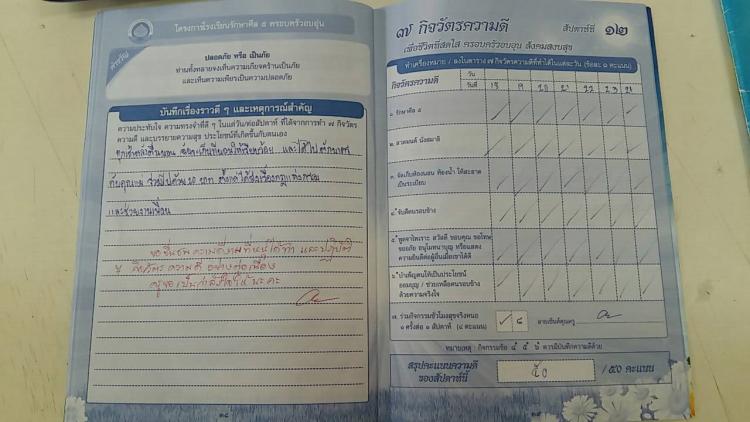 โครงการโรงเรียนรักษาศีล ๕ ครอบครัวอบอุ่น
ปลอดภัย หรือ เป็นภัย
ท่านทั้งหลายจงเห็นความเกียจคร้านเป็นภัย
และเห็นความเพียรเป็นความปลอดภัย
บันทึกเรื่องราวดี ๆ และเหตุการณ์สำคัญ
ความประทับใจ ความทรงจำที่ดี ๆ ในแต่วัน/ต่อสัปดาห์ ที่ได้จากการทำ ๗ กิจวัตร
ความดี และบรรยายความสุข ประโยชน์ที่เกิดขึ้นกับตนเอง
และช่วยงานเพื่อน
ขอชื่นชม ความดีงามที่หนูได้ทำ และปฏิบัติ
๗ กิจวัตร ความดี อย่างต่อเนื่อง
ครูขอเป็นกำลังใจให้ นะคะ
๓๔
๗ กิจวัตรความดี
สัปดาห์ที่ ๑๒
เพื่อชีวิตที่สดใส ครอบครัวอบอุ่น สังคมสงบสุข
ทำเครื่องหมาย / ลงในตาราง ๗ กิจวัตรความดีที่ทำได้ในแต่ละวัน (ข้อละ ๑ คะแนน)
กิจวัตรความดี
วัน
วันที่ 18 19 20 21 22 23 24
๑. รักษาศีล ๕
๒. สวดมนต์ นั่งสมาธิ
๓. จัดเก็บห้องนอน ห้องน้ำ ให้สะอาด
เป็นระเบียบ
๔. จับดีคนรอบข้าง
๕. พูดจาไพเราะ สวัสดี ขอบคุณ ขอโทษ
ขออภัย อนุโมทนาบุญ หรือแสดง
ความยินดีต่อผู้อื่นเมื่อเขาได้ดี
๖. บำเพ็ญตนให้เป็นประโยชน์
ออมบุญ / ช่วยเหลือคนรอบข้าง
ด้วยความจริงใจ
๗. ร่วมกิจกรรมชั่วโมงสุขจริงหนอ
๑ ครั้งต่อ ๑ สัปดาห์ (๘ คะแนน)
๘
ลายเซ็นต์คุณครู
หมายเหตุ : กิจกรรมข้อ ๔ ๕ ๖ ควรมีบันทึกความดีด้วย
สรุปคะแนนความดี
ของสัปดาห์นี้
๕๐
/ ๕๐ คะแนน
๓๕